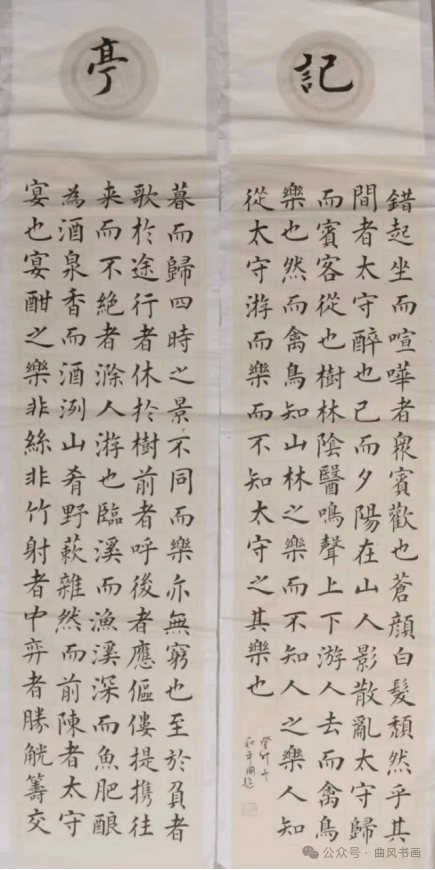 亭
暮而歸四時之景不同而樂亦無窮也至於負者
歌於途行者休於樹前者呼後者應傴僂提攜往
来而不絕者滁人游也臨溪而漁溪深而魚肥釀
為酒泉香而酒洌山肴野蔌雜然而前陳者太守
宴也宴酣之樂非絲非竹射者中弈者勝觥籌交
記
錯起坐而喧嘩者衆賓歡也蒼顏白髮頹然乎其
間者太守醉也已而夕陽在山人影散亂太守歸
而賓客從也樹林陰醫鳴聲上下游人去而禽鳥
樂也然而禽鳥知山林之樂而不知人之樂人知
從太守游而樂而不知太守之其樂也
癸卯
公众号 · 曲风书画